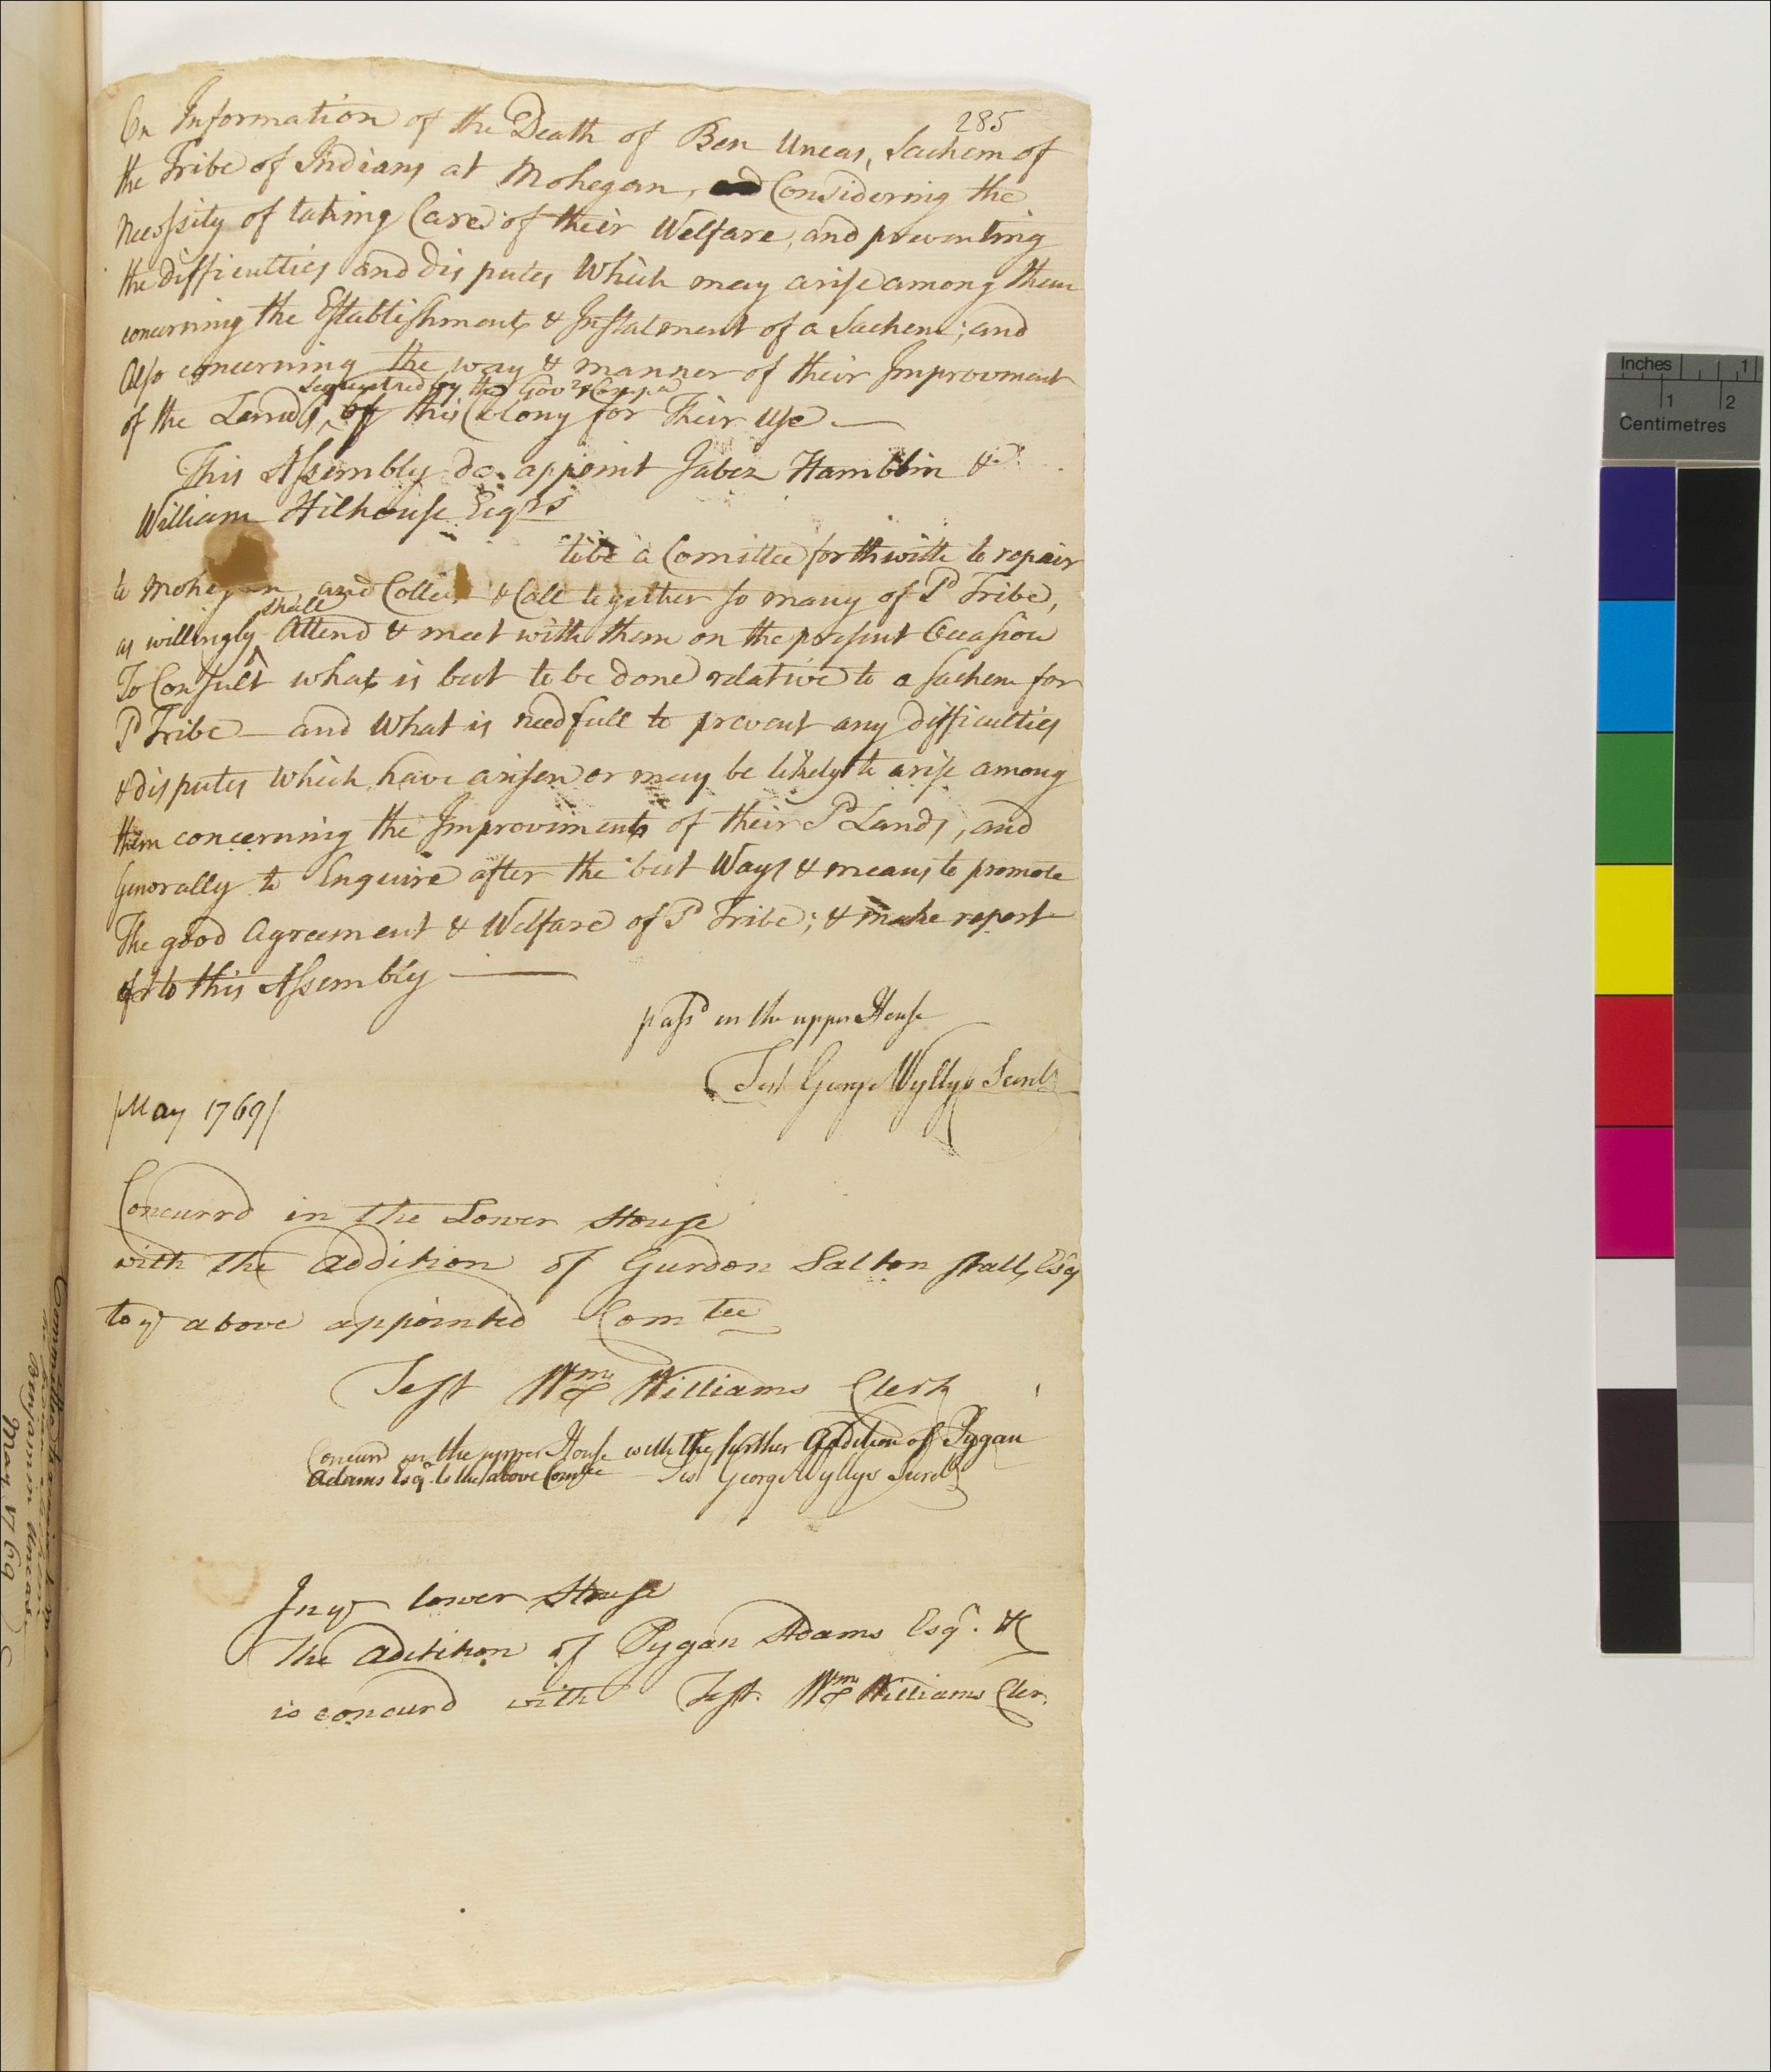 285
On Information of the Death of Ben Uncas, Sachem of
the Tribe of Indians at Mohegan, Considering the
Necessity of taking Care of their Welfare, and preventing
the difficulties and disputes Which may arise among them
concerning the Establishment & Instalment of a Sachem; and
Also concerning the way & manner of their Improvment
sequestred by the Govr & Compa
of the Lands, of this Colony for Their Use —
This Assembly do appoint Jabez Hamblin &
William Hilhouse Esqrs
to be a Comittee forthwith to repair
to Mohegan and Collect & Call together so many of sd Tribe,
shall
as willingly Attend & meet with them on the present Occasion
To Consult what is best to be done relative to a Sachem for
sd Tribe — and What is needfull to prevent any difficulties
& disputes Which have arisen or may be likely to arise among
them concerning the Improviments of their sd Lands, and
Generally to Enquire after the best Ways & means to promote
The good Agreement & Welfare of sd Tribe; & make report
to this Assembly —
pass'd in the upper House
Test George Wyllys Secret
[May 1769]
Concurrd in the Lower House
with the addition of Gurdon Saltonstall, Esq
to ye above appointed Comtee
Test Wm Williams Clerk
Concurd in the upper House with the further Addition of Pygan
Adams Esqr to the above Comtee Test George Wyllys Secret
In ye lower House
The adition of Pygan Adams Esqr. &c
is concurd with Test. Wm Williams Cler.
Benjamin Uncas
May 1769